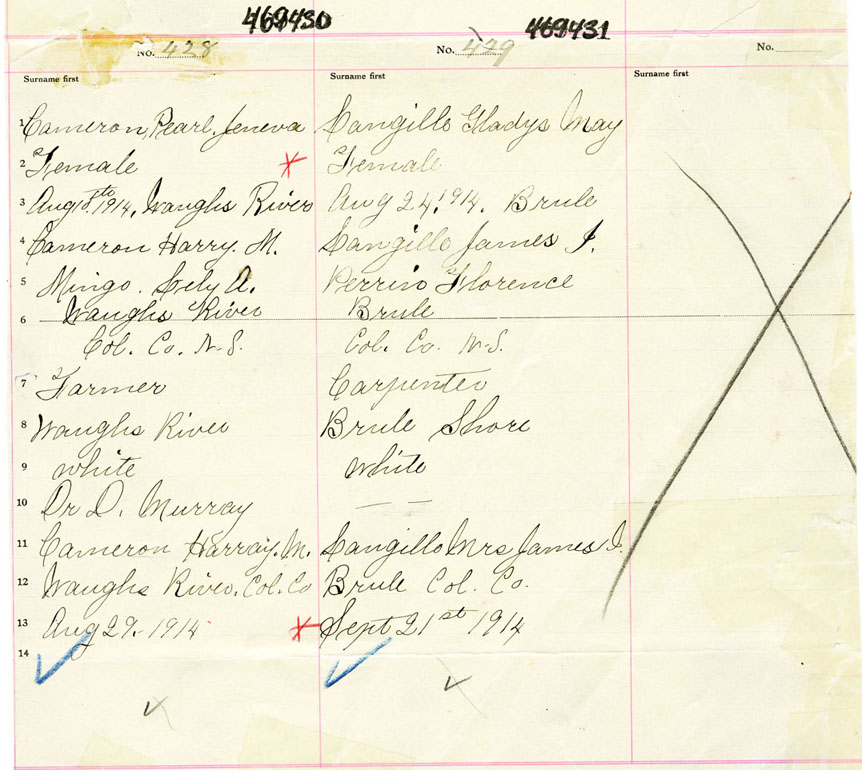 469430
469431
No. 428
No. 429
No.
Surname first
Surname first
Surname first
1 Cameron, Pearl Jeneva
Langille Gladys May
2 Female
Female
3 Aug 1914, Waughs River
Aug 24, 1914. Brule
4 Cameron Harry. M.
Langille James I.
5 Mingo. Lely A.
Perrin Florence
Waughs River
Brule
6
Col. Co. N.S.
Col. Co. N.S.
7 Farmer
Carpenter
8 Waughs River
Brule Shore
9 white
white
10 Dr D. Murray
— —
11 Cameron Harray. M.
Langille Mrs James I.
12 Waughs River. Col. Co
Brule Col. Co.
13 Aug 29. 1914
Sept 21st 1914
14